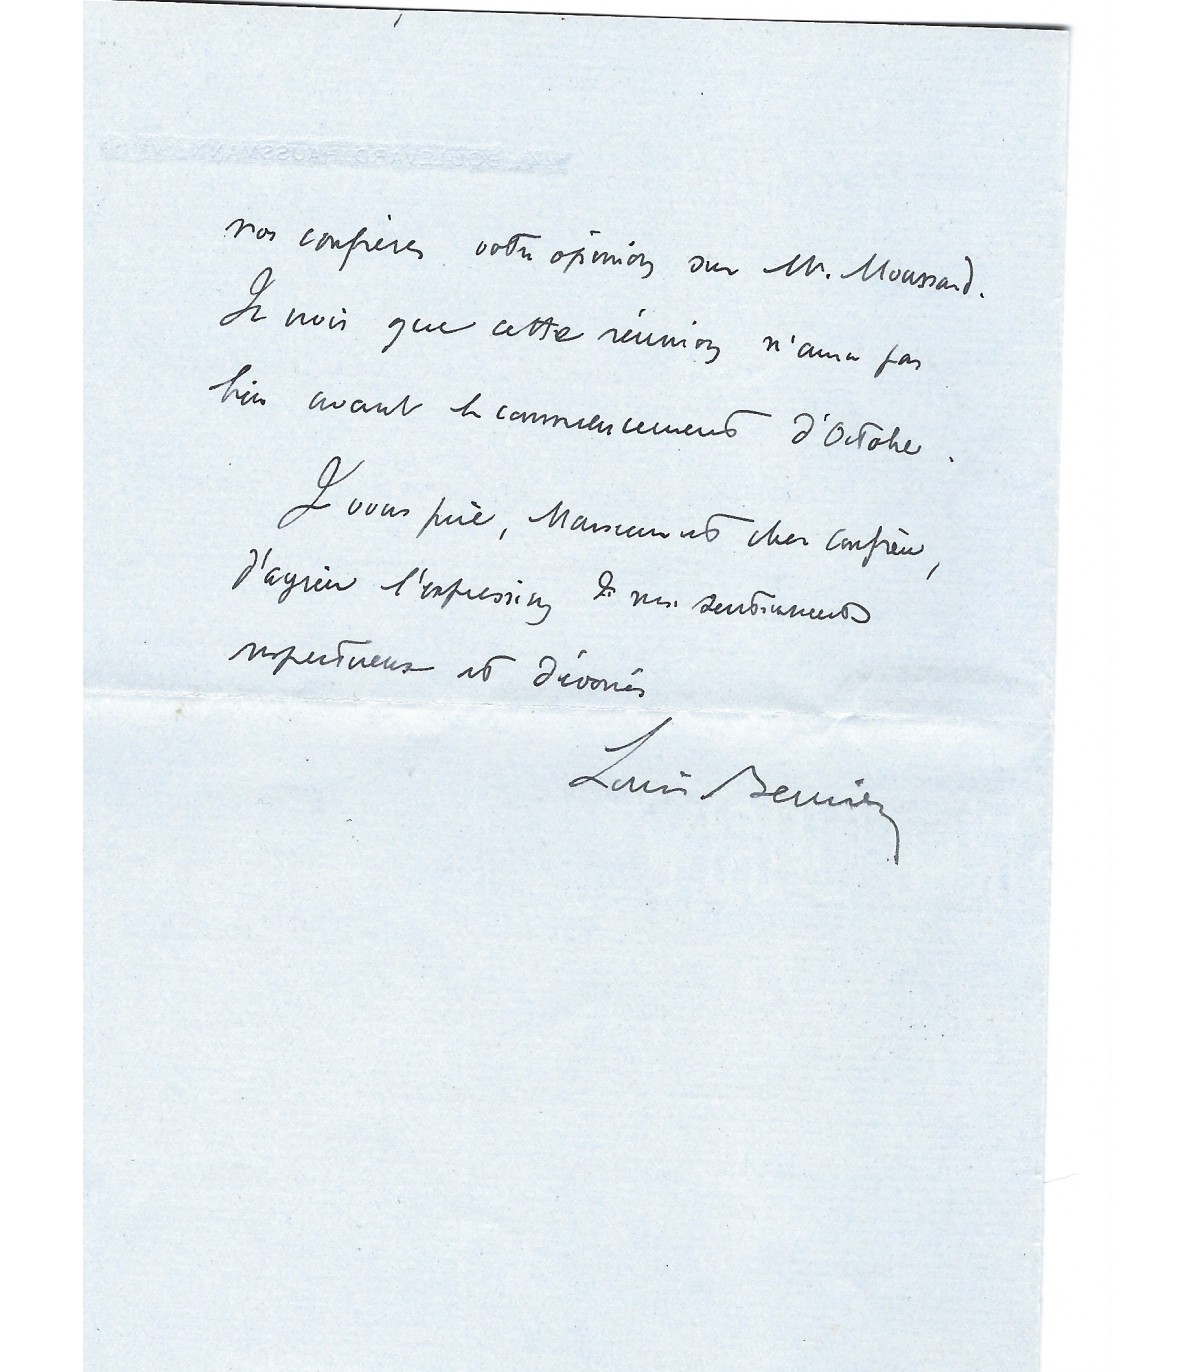 BOULEVARD HAUSSMANN
nos confrères votre opinion sur M. Moussard.
Je crois que cette réunion n'aura pas
lieu avant le commencement d'Octobre.
Je vous prie, Monsieur et cher confrère,
d'agréer l'expression de mes sentiments
respectueux et dévoués
Louis Bernier